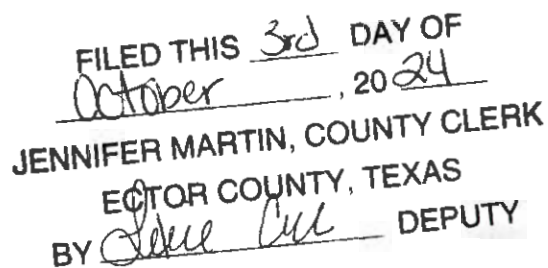 FILED THIS 3rd DAY OF
October, 2024
JENNIFER MARTIN, COUNTY CLERK
ECTOR COUNTY, TEXAS
BY DEPUTY